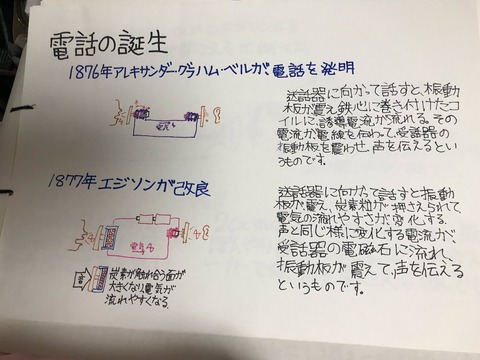 電話の誕生
1876年アレキサンダー・グラハム・ベルが、電話を発明
送話器に向かって話すと、振動
板が震え鉄心に巻き付けたコ
イルに、誘導電流が流れる。その
電流が電線を伝わって、受話器の
振動板を震わせ、声を伝えるとい
うものです。
電線
1877年 エジソンが改良
送話器に向かって話すと振動
板が震え、炭素粒が押さえられて
電気の流れやすさが変化する。
声と同じ様に変化する電流が、
受話器の電磁石に流れ、
振動板が震えて、声を伝える
というものです。
電線
音
炭素が触れ合う面が
大きくなり、電気が
流れやすくなる。